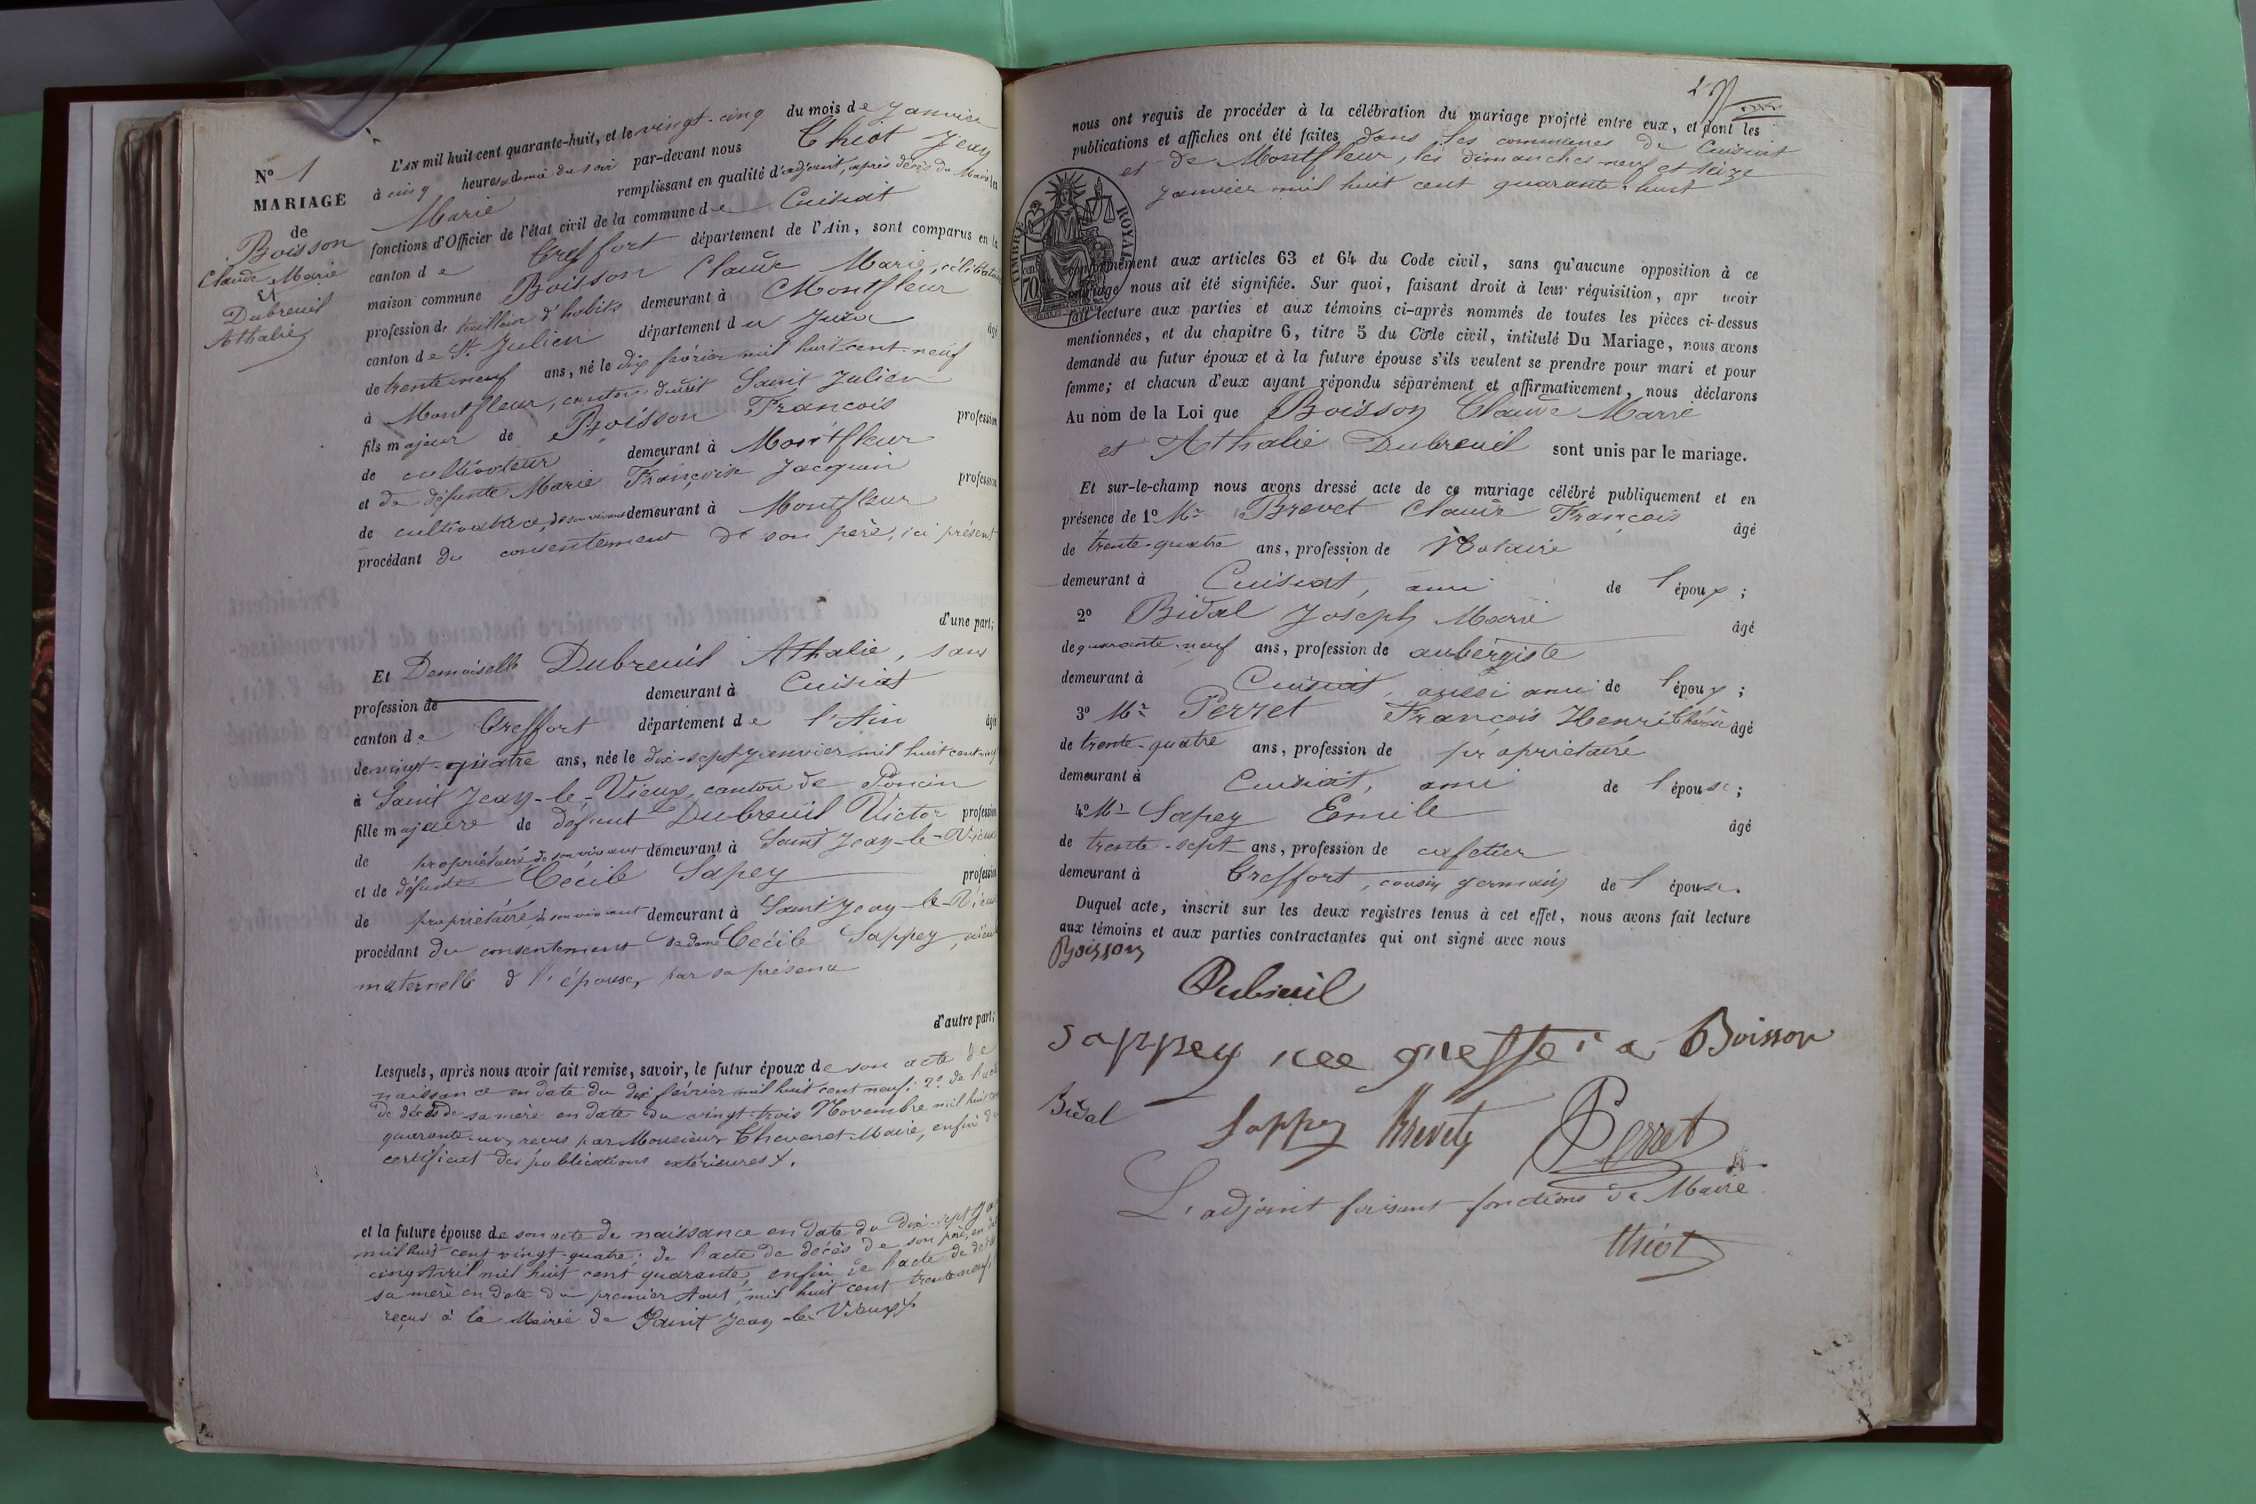 N° 1
MARIAGE
de
Boisson
Claude Marie
et
Dubreuil
Athalie
L'an mil huit cent quarante-huit, et le vingt-cinq du mois de Janvier
à cinq heures & demie du soir par-devant nous Chiot Jean
Marie remplissant en qualité d'adjoint, après décès du Maire les
fonctions d'Officier de l'état civil de la commune de Cuisiat
canton de Treffort département de l'Ain, sont comparus en la
maison commune Boisson Claude Marie, célibataire
profession de tailleur d'habits demeurant à Montfleur
canton de St Julien département du Jura âgé
de trente neuf ans, né le dix février mil huit cent neuf
à Montfleur, canton dudit Saint Julien
fils majeur de Boisson François profession
de cultivateur demeurant à Montfleur
et de défunte Marie Françoise Jacquin profession
de cultivatrice, de son vivant demeurant à Montfleur
procédant du consentement de son père, ici présent
d'une part;
Et Demoiselle Dubreuil Athalie, sans
profession de demeurant à Cuisiat
canton de Treffort département de l'Ain âgée
de vingt-quatre ans, née le dix-sept janvier mil huit cent vingt
à Saint Jean-le-Vieux, canton de Poncin
fille majeure de défunt Dubreuil Victor profession
de propriétaire de son vivant demeurant à Saint Jean-le-Vieux
et de défunte Cécile Sapey profession
de propriétaire, de son vivant demeurant à Saint Jean-le-Vieux
procédant du consentement de dame Cécile Sappey, aïeule
maternelle de l'épouse, par sa présence
d'autre part;
Lesquels, après nous avoir fait remise, savoir, le futur époux de son acte de
naissance en date du dix février mil huit cent neuf; 2° de l'acte
de décès de sa mère en date du vingt-trois Novembre mil huit cent
quarante-un, reçus par Monsieur Thevenet Maire, enfin du
certificat des publications extérieures.
et la future épouse de son acte de naissance en date du dix-sept Jan
mil huit cent vingt-quatre; de l'acte de décès de son père, en date
cinq Avril mil huit cent quarante, enfin de l'acte de décès
sa mère en date du premier Aout, mil huit cent trente neuf,
reçus à la Mairie de Saint Jean-le-Vieux
nous ont requis de procéder à la célébration du mariage projeté entre eux, et dont les
publications et affiches ont été faites dans les communes de Cuisiat
et de Montfleur, les dimanches neuf et seize
Janvier mil huit cent quarante-huit
TIMBRE ROYAL
70
conformément aux articles 63 et 64 du Code civil, sans qu'aucune opposition à ce
mariage nous ait été signifiée. Sur quoi, faisant droit à leur réquisition, apr avoir
fait lecture aux parties et aux témoins ci-après nommés de toutes les pièces ci-dessus
mentionnées, et du chapitre 6, titre 5 du Code civil, intitulé Du Mariage, nous avons
demandé au futur époux et à la future épouse s'ils veulent se prendre pour mari et pour
femme; et chacun d'eux ayant répondu séparément et affirmativement, nous déclarons
Au nom de la Loi que Boisson Claude Marie
et Athalie Dubreuil sont unis par le mariage.
Et sur-le-champ nous avons dressé acte de ce mariage célébré publiquement et en
présence de 1° Mr Brevet Claude François âgé
de trente-quatre ans, profession de Notaire
demeurant à Cuisiat, ami de l'époux;
2° Bidal Joseph Marie âgé
de quarante-neuf ans, profession de aubergiste
demeurant à Cuisiat, aussi ami de l'époux;
3° Mr Perret François Henri âgé
de trente-quatre ans, profession de propriétaire
demeurant à Cuisiat, ami de l'épouse;
4° Mr Sapey Emile âgé
de trente-sept ans, profession de cafetier
demeurant à Treffort, cousin germain de l'épouse.
Duquel acte, inscrit sur les deux registres tenus à cet effet, nous avons fait lecture
aux témoins et aux parties contractantes qui ont signé avec nous
Boisson
Dubreuil
Sappey née Boisson
Bidal
Sappey Brevet Perret
L'adjoint faisant fonctions de Maire
Chiot